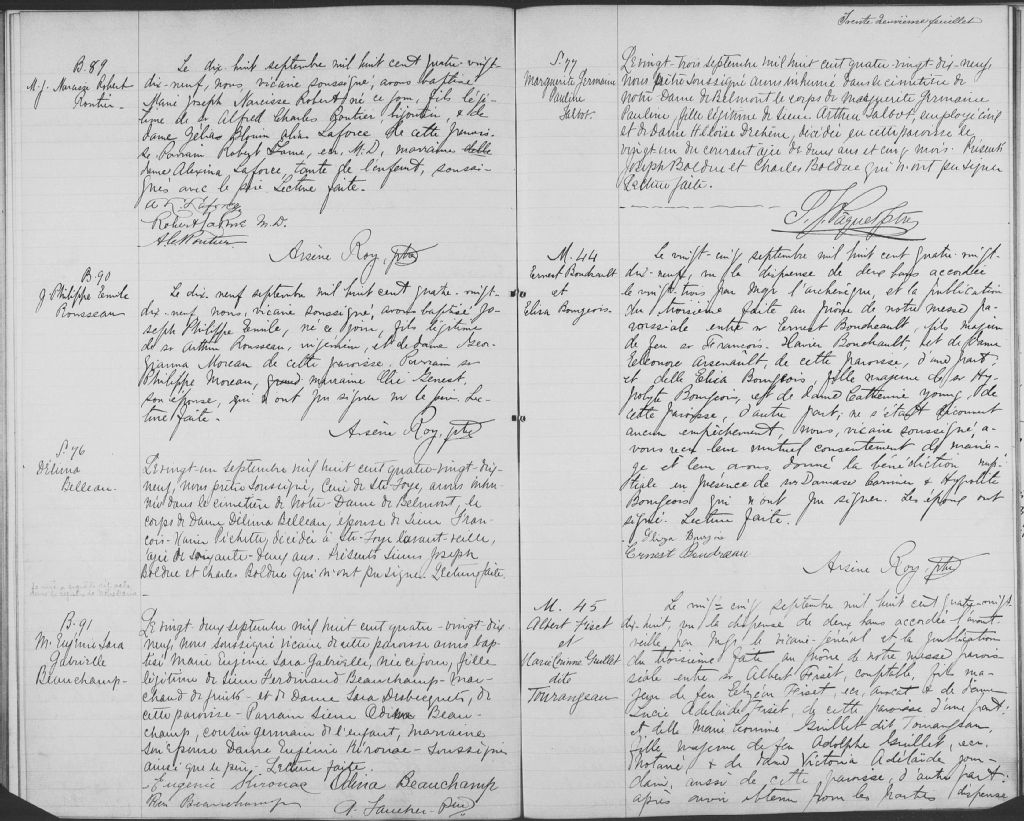 B. 89
M. J. Narcisse Robert
Routier
Le dix huit septembre mil huit cent quatre vingt
dix-neuf, nous, vicaire soussigné, avons baptisé
Marie Joseph Narcisse Robert, né ce jour, fils légi-
time de sr Alfred Charles Routier, bijoutier, & de
dame Laforce de cette parois-
se. Parrain Robert Laforce, ecr. M.D, marraine delle
dame Alexina Laforce tante de l'enfant, soussi-
gnés avec le père. Lecture faite.
Robert LaForce M.D.
Alc Routier
Arsène Roy, ptre
B. 90
J. Philippe Emile
Rousseau
Le dix-neuf septembre mil huit cent quatre-vingt-
dix-neuf nous, vicaire soussigné, avons baptisé Jo-
seph Philippe Emile, né ce jour, fils légitime
de sr Arthur Rousseau, ingénieur, et de dame Geor-
gianna Moreau de cette paroisse. Parrain sr
Philippe Moreau, marraine Genest,
son épouse, qui n'ont pu signer ni le père. Lec-
ture faite.
Arsène Roy, ptre
S. 76
Délima
Belleau
Le vingt-un septembre mil huit cent quatre-vingt-dix-
neuf, nous prêtre soussigné, Curé de Ste Foye, avons inhu-
mé dans le cimetière de Notre-Dame de Belmont, le
corps de Dame Délima Belleau, épouse de Sieur Fran-
cois-Xavier Pichette, décédée à Ste-Foye l'avant-veille,
agée de soixante-deux ans. Présents Sieurs Joseph
Boldue et Charles Boldue qui n'ont pu signer. Lecture faite.
B. 91
M. Eugénie Sara
Gabrielle
Beauchamp-
Le vingt-deux septembre mil huit cent quatre-vingt-dix-
neuf, nous soussigné vicaire de cette paroisse avons bap-
tisé Marie Eugénie Sara Gabrielle, née ce jour, fille
légitime de Sieur Ferdinand Beauchamp-mar-
chand de fruits-et de Dame Sara Desbecquets, de
cette paroisse-Parrain Sieur Beau-
champ, cousin germain de l'enfant, marraine
son épouse Dame Eugénie Kirouac-Soussignés
ainsi que le père-Lecture faite.
Eugénie Kirouac Beauchamp
Beauchamp
Faucher-Ptre
Trente deuxième feuillet
S. 77
Marguerite Germaine
Pauline
Talbot.
Le vingt-trois septembre mil huit cent quatre-vingt-dix-neuf
Nous prêtre soussigné avons inhumé dans le cimetière de
Notre-Dame de Belmont le corps de Marguerite Germaine
Pauline, fille légitime de Sieur Arthur Talbot, employé civil
et de Dame Héloïse Dechêne, décédée en cette paroisse le
vingt-un du courant agée de deux ans et cinq mois. Présents
Joseph Boldue et Charles Boldue qui n'ont pu signer
Lecture faite.
Paquet ptre
M. 44
Ernest Bouchault
et
Eliza Bourgeois.
Le vingt-cinq septembre mil huit cent quatre-vingt-
dix-neuf, vu la dispense de deux bans accordée
le vingt-trois par Mgr l'archevêque, et la publication
du troisième faite au prône de notre messe pa-
roissiale entre sr Ernest Boucheault, fils majeur
de feu sr François-Xavier Bouchault, et de Dame
Eléonore Arsenault, de cette paroisse, d'une part;
et delle Eliza Bourgeois, fille majeure de sr Hy-
polyte Bourgeois, et de dame Catherine Young, de
cette paroisse, d'autre part; ne s'étant découvert
aucun empêchement, nous, vicaire soussigné a-
vons reçu leur mutuel consentement de maria-
ge et leur avons donné la bénédiction nup-
tiale en présence de srs Damase Carrier & Hypolite
Bourgeois qui n'ont pu signer. Les époux ont
signé. Lecture faite.
Eliza Bourgois
Ernest Boudreau
Arsène Roy, ptre
M. 45
Albert Fiset
et
Marie Corinne Guillet
dite
Tourangeau
Le vingt-cinq septembre mil huit cent quatre-vingt-
dix-huit, vu la dispense de deux bans accordée l'avant
veille par Mgr le vicaire-général et la publication
du troisième faite au prône de notre messe parois-
siale entre sr Albert Fiset, comptable, fils ma-
jeur de feu Elzéar Fiset, ecr, avocat & de dame
Lucie Adélaïde Fiset, de cette paroisse d'une part;
et delle Marie Corinne Guillet dit Tourangeau
fille majeure de feu Adolphe Guillet, ecr.
Notaire & de dame Victoria Adélaïde Jour-
dain, aussi de cette paroisse, d'autre part;
après avoir obtenu pour les parties dispense